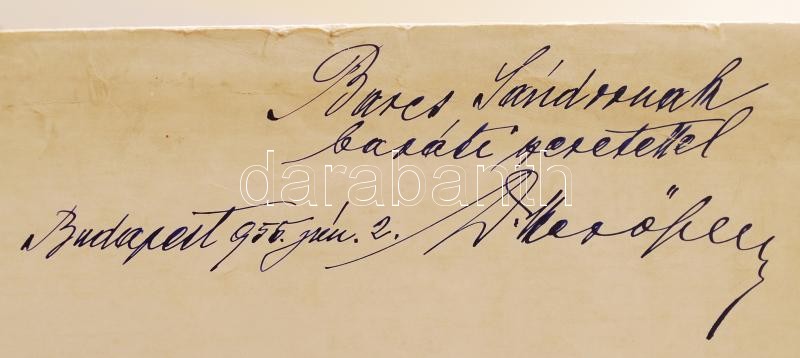 Barcs Sándornak
baráti szeretettel
darabanth
Budapest 955. jún. 2. Dr.